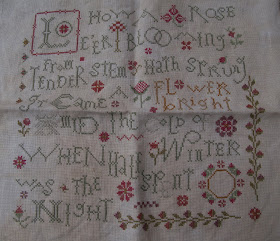 Lo How A Rose
E'er Blooming
from
Tender Stem Hath Sprung
It Came A Flower
bright
Amid the Cold of
Winter
When Half
was the Spent
Night